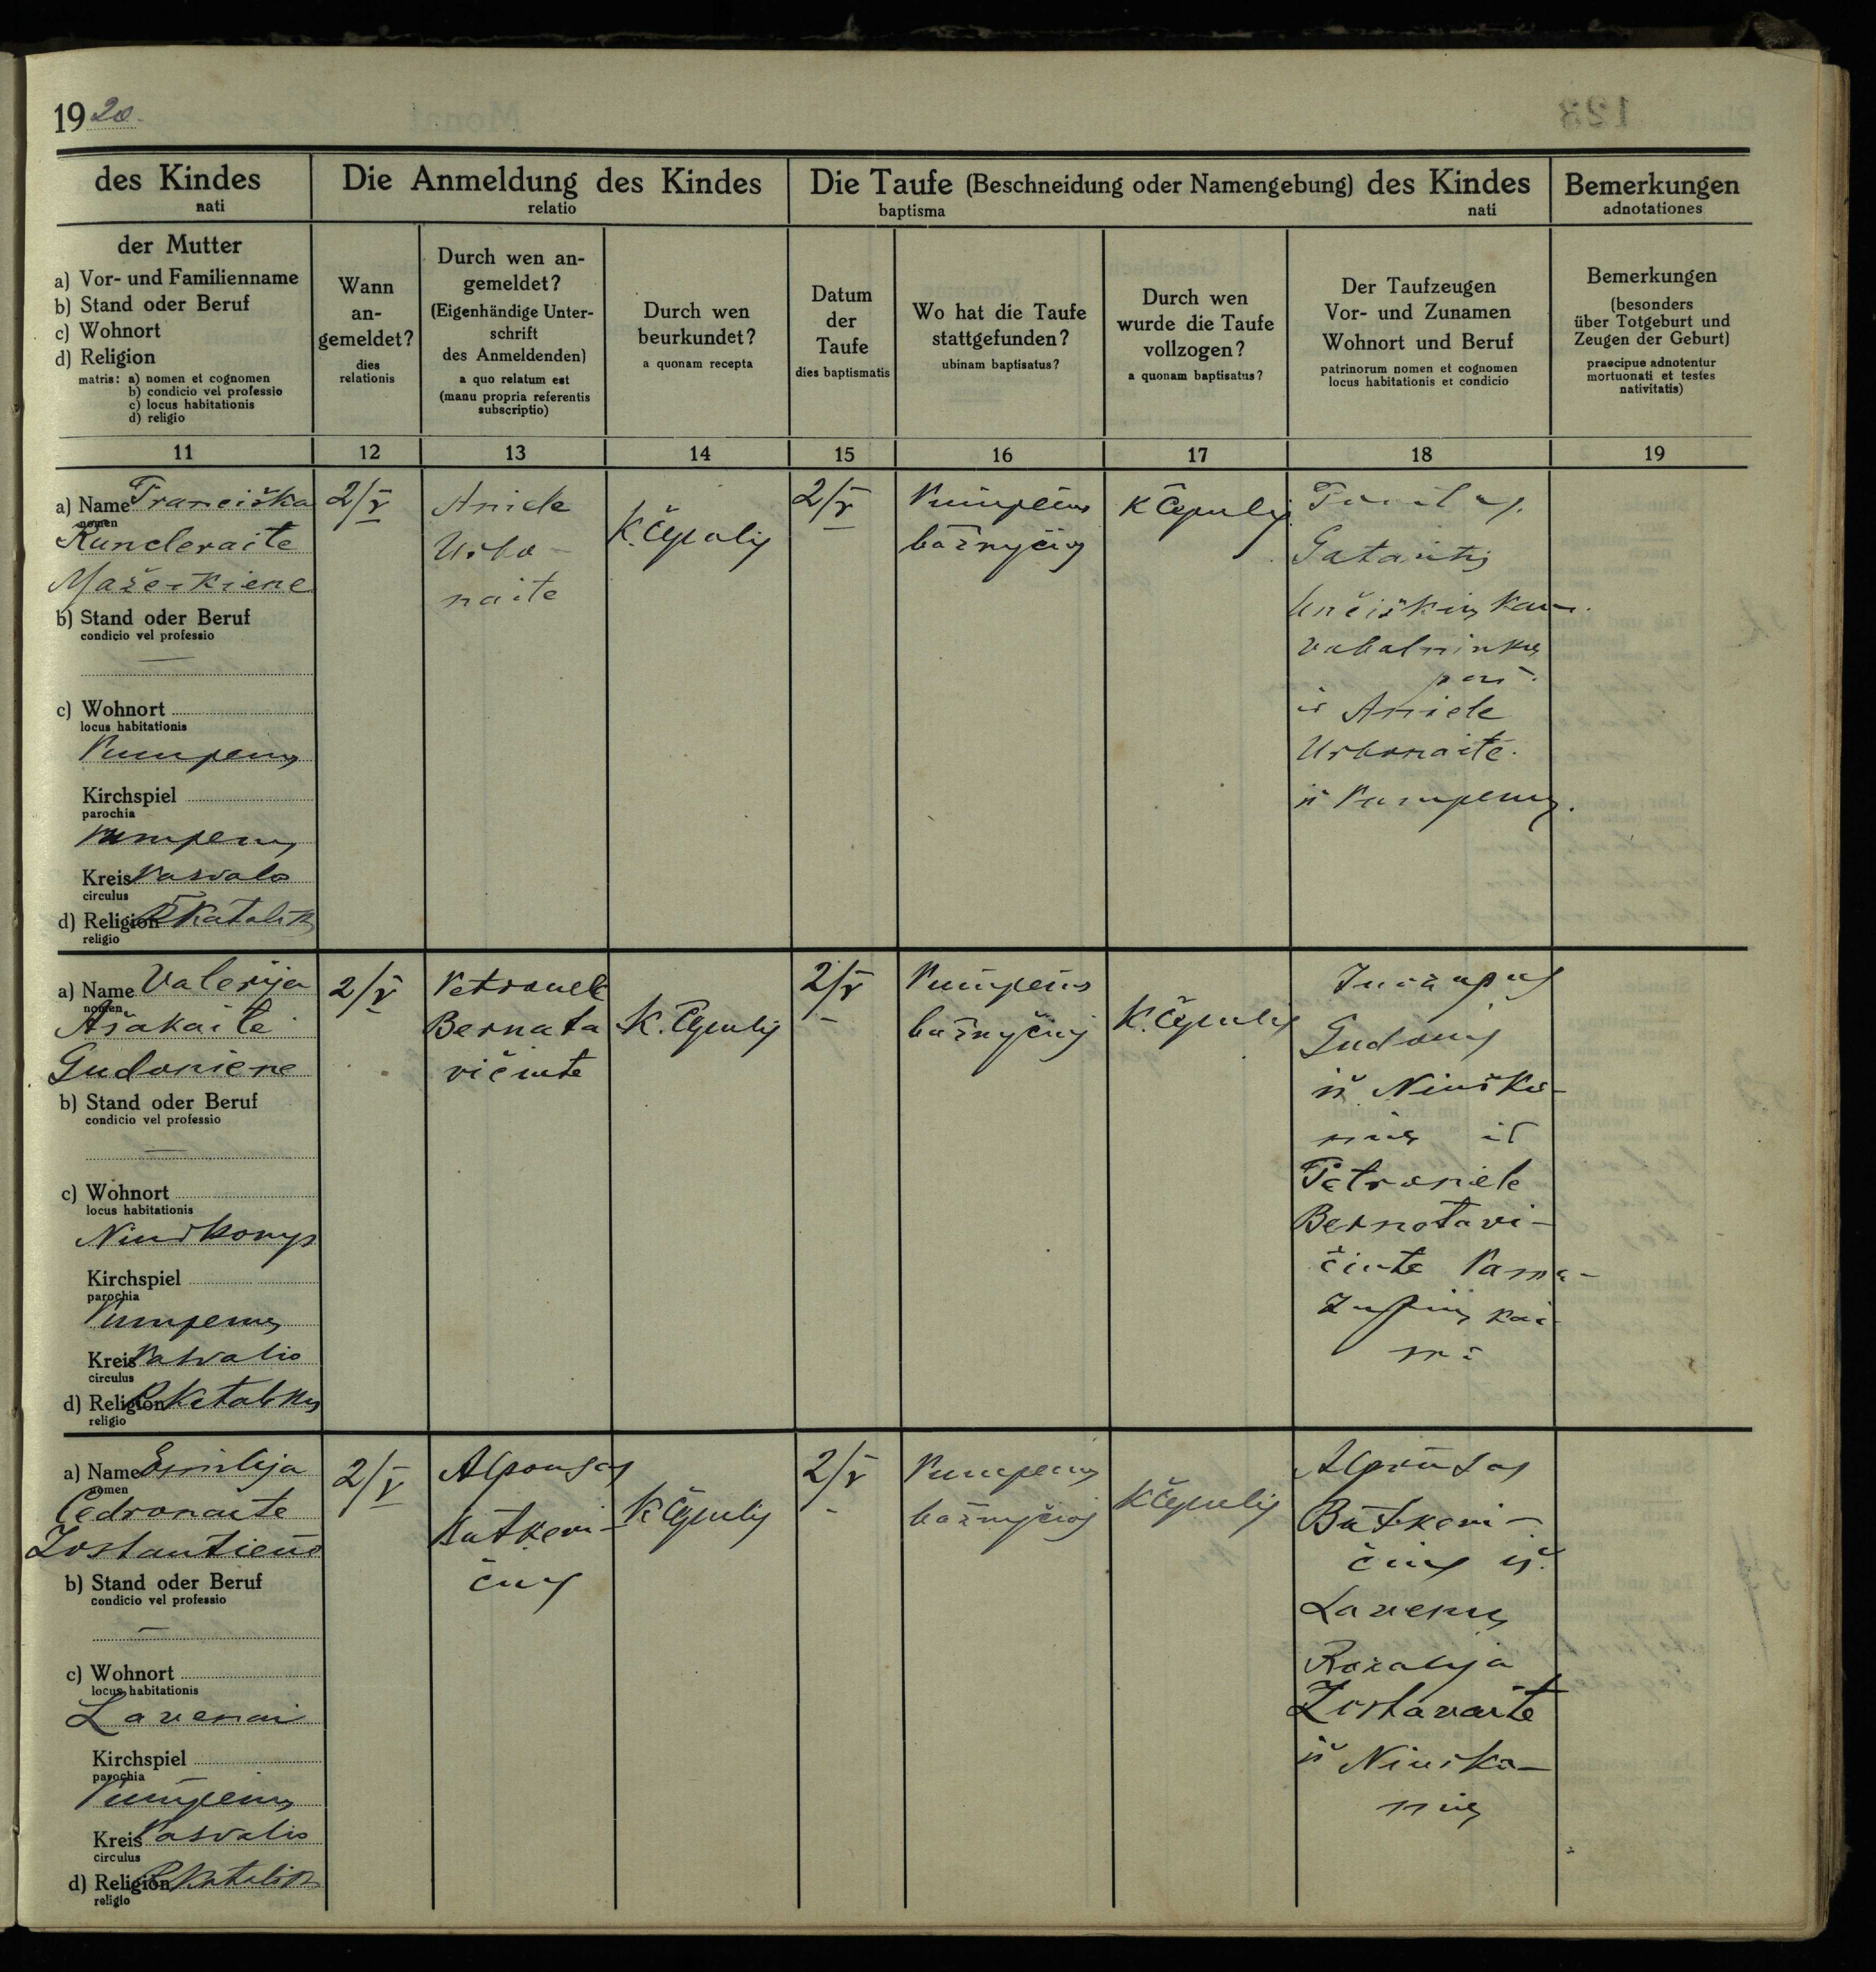 1920.
des Kindes
nati
Die Anmeldung des Kindes
relatio
Die Taufe (Beschneidung oder Namengebung) des Kindes
baptisma nati
Bemerkungen
adnotationes
der Mutter
a) Vor- und Familienname
b) Stand oder Beruf
c) Wohnort
d) Religion
matris: a) nomen et cognomen
b) condicio vel professio
c) locus habitationis
d) religio
Wann
an-
gemeldet?
dies
relationis
Durch wen an-
gemeldet?
(Eigenhändige Unter-
schrift
des Anmeldenden)
a quo relatum est
(manu propria referentis
subscriptio)
Durch wen
beurkundet?
a quonam recepta
Datum
der
Taufe
dies baptismatis
Wo hat die Taufe
stattgefunden?
ubinam baptisatus?
Durch wen
wurde die Taufe
vollzogen?
a quonam baptisatus?
Der Taufzeugen
Vor- und Zunamen
Wohnort und Beruf
patrinorum nomen et cognomen
locus habitationis et condicio
Bemerkungen
(besonders
über Totgeburt und
Zeugen der Geburt)
praecipue adnotentur
mortuonati et testes
nativitatis)
11 12 13 14 15 16 17 18 19
a) Name Franciška
nomen
Kunderaite
Mažeikiene
b) Stand oder Beruf
condicio vel professio
—
c) Wohnort
locus habitationis
Pumpenų
Kirchspiel
parochia
Pumpenų
Kreis Pasvalo
circulus
d) Religion R Katalik
religio
2/V
Aniele
Urbo-
naite
K. Čepulis
2/V
Pumpenų
bažnyčioj
K Čepulis
Gataūtis
kaim.
Vabalninkų
par.
ir Aniele
Urbonaitė
iš Pumpenų.
a) Name Valerija
nomen
Ašakaite
Gudoniene
b) Stand oder Beruf
condicio vel professio
—
c) Wohnort
locus habitationis
Niurkonys
Kirchspiel
parochia
Pumpenų
Kreis Pasvalio
circulus
d) Religion R Katalikų
religio
2/V
Petronele
Bernata
vičiute
K. Čepulis
2/V
Pumpenų
bažnyčioj
K. Čepulis
Juozapas
Gudonis
iš Niurko-
nių ir
Petronielė
Bernotavi-
čiute
kai-
mo
a) Name Emilija
nomen
Cedronaite
Zostautienė
b) Stand oder Beruf
condicio vel professio
—
c) Wohnort
locus habitationis
Lavenai
Kirchspiel
parochia
Pumpenų
Kreis Pasvalio
circulus
d) Religion R Katalik
religio
2/V
Alponsas
Butkevi-
čius
K Čepulis
2/V
Pumpenų
bažnyčioj
K Čepulis
Alponsas
Butkevi-
čius iš
Lavenų
Rozalija
Zostavaite
iš Niurko-
nių